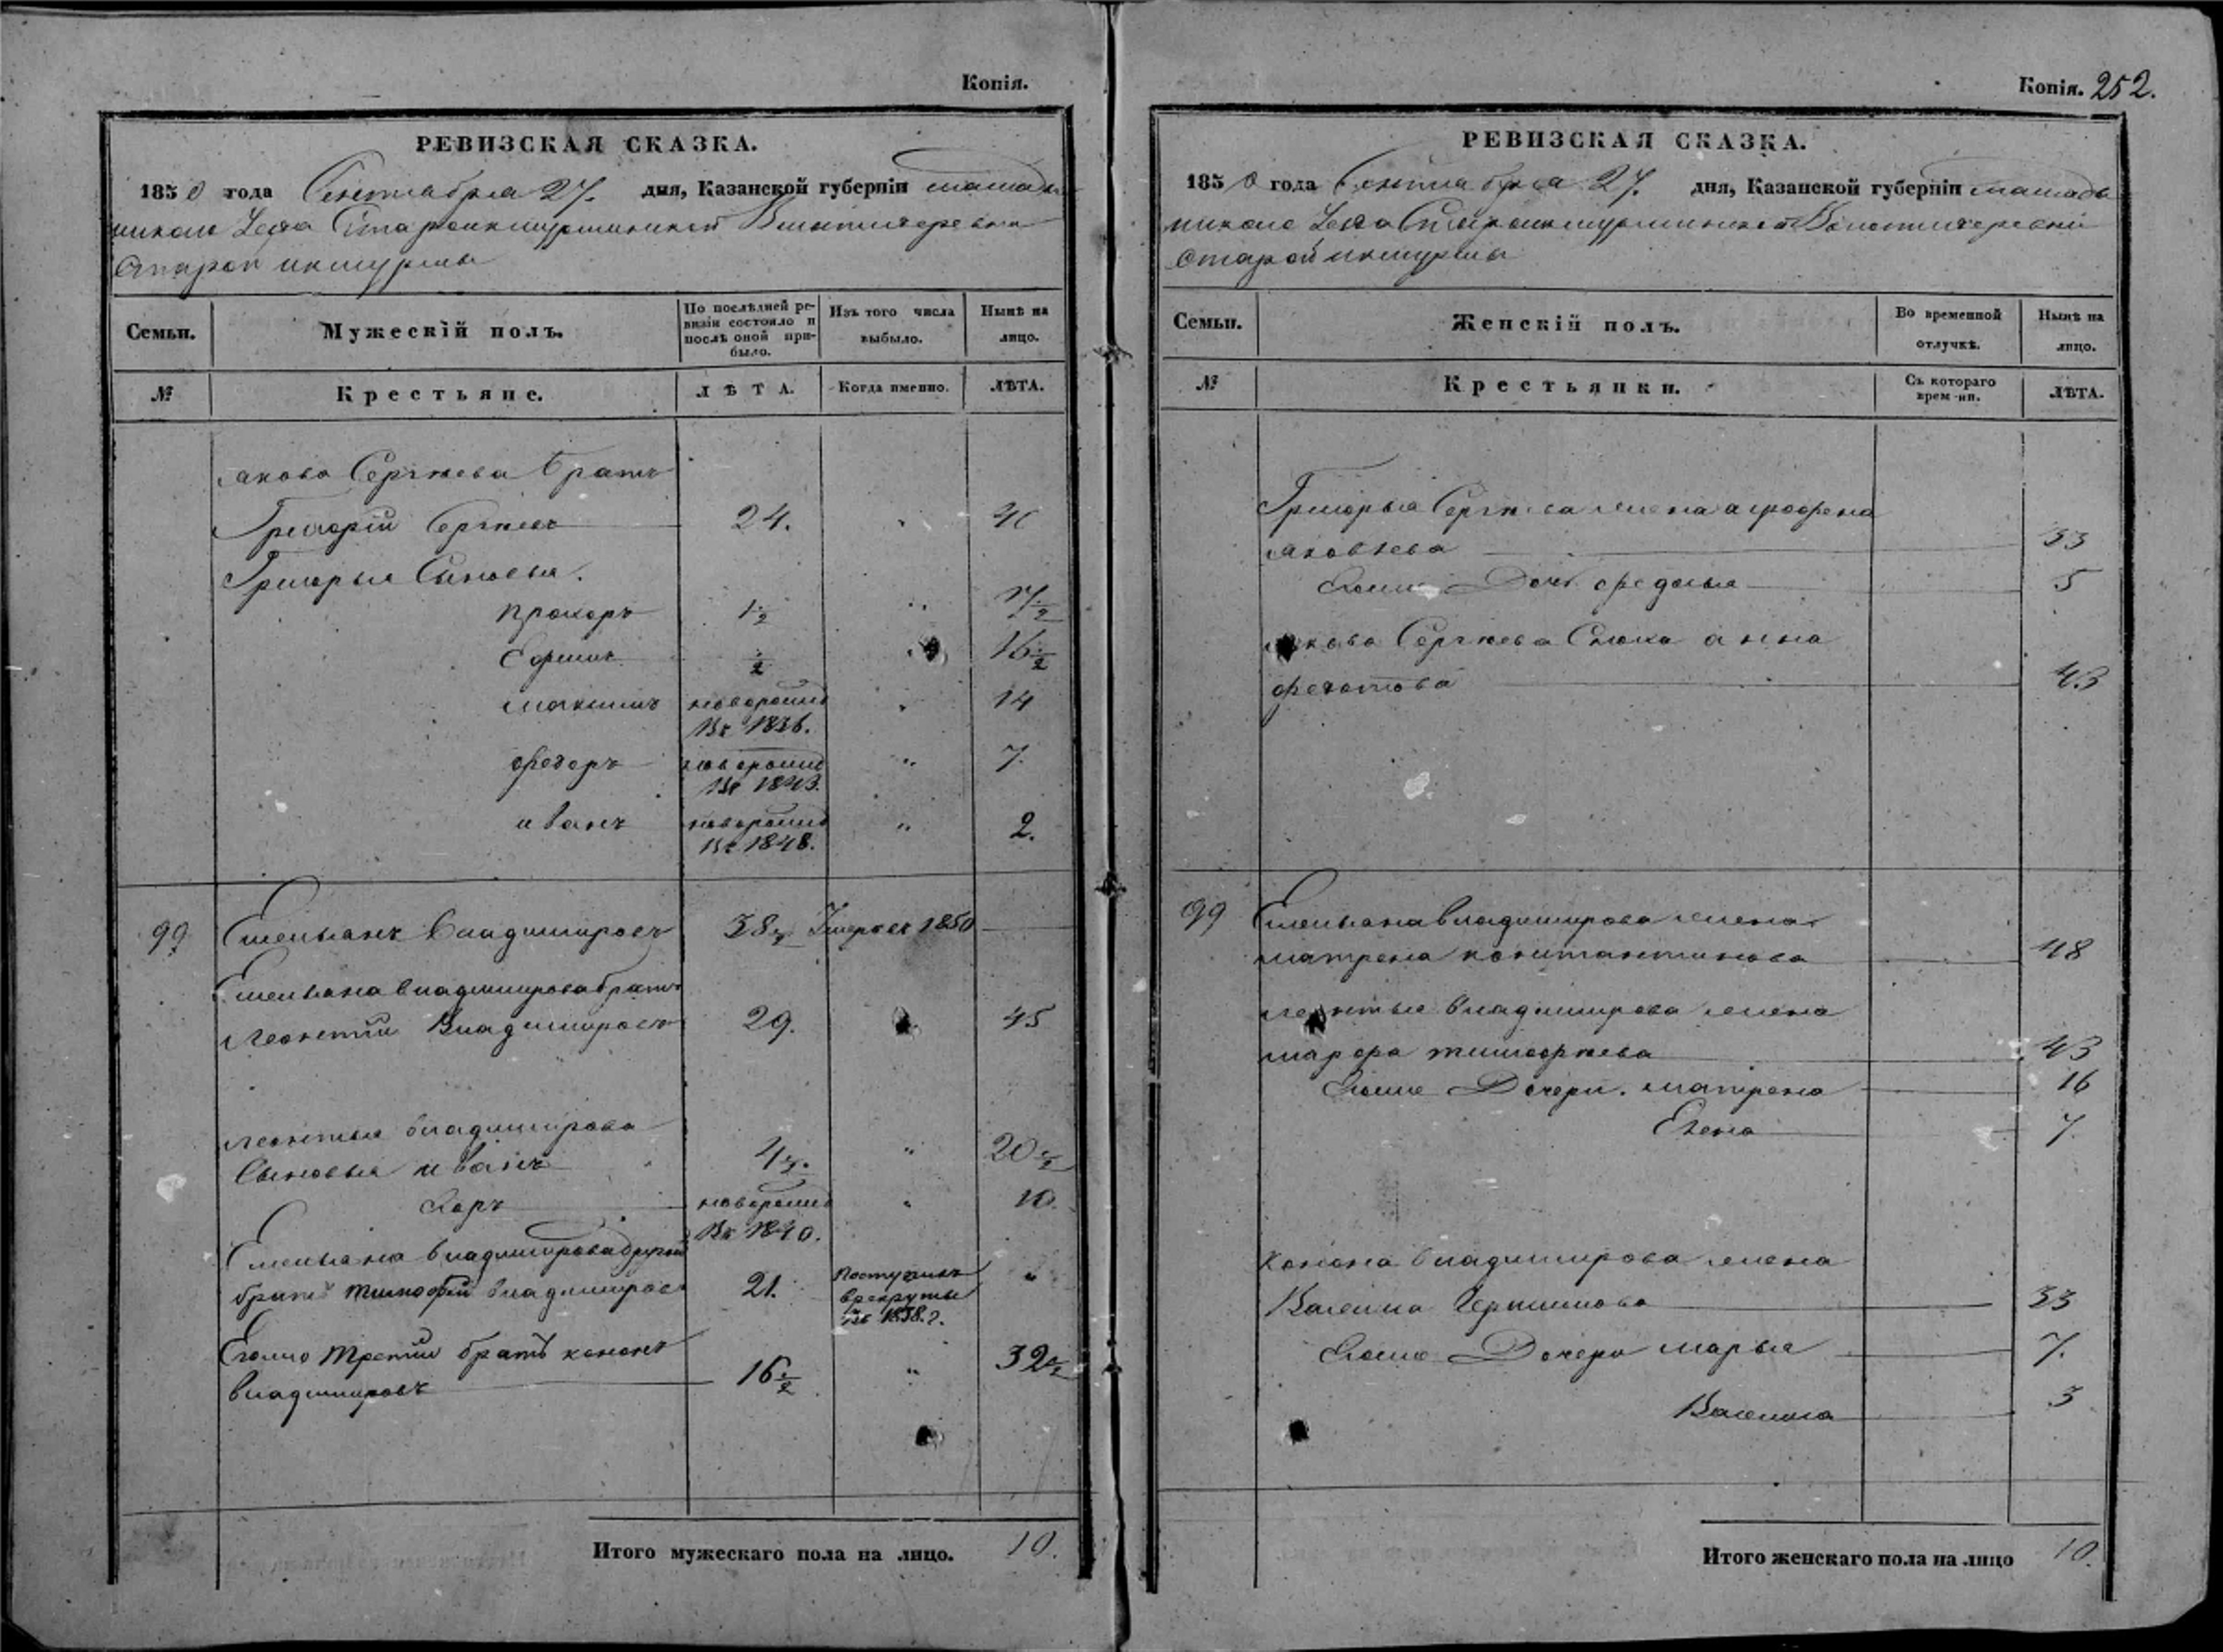 Копія.
РЕВИЗСКАЯ СКАЗКА.
1850 года Сентября 27. дня, Казанской губерніи
Волости деревни
Старой икшурмы
Семьи.
Мужескій полъ.
По послѣдней ре-
визіи состояло и
послѣ оной при-
было.
Изъ того числа
выбыло.
Нынѣ на
лицо.
№
Крестьяне.
ЛѢТА.
Когда именно.
ЛѢТА.
якова Сергѣева братъ
Григорій Сергѣевъ 24. " 40
Григорья Сыновья.
прохоръ 1½ " 17½
Ефимъ ½ " 16½
максимъ новорожд " 14
въ 1836.
федоръ новорожд " 7.
въ 1843.
иванъ новорожд " 2.
въ 1848.
99 Емельянъ владимировъ 38½ Умеръ въ 1850
Емельяна владимирова братъ
леонтій Владимировъ 29. 45
леонтья владимирова
Сыновья иванъ 4½. " 20½
новорожд " 10.
въ 1840.
Емельяна владимирова другой
братъ тимофей владимировъ 21. поступилъ "
в рекруты
1838
Егожъ третій братъ кононъ
владимировъ 16½ " 32½
Итого мужескаго пола на лицо. 10.
Копія. 252.
РЕВИЗСКАЯ СКАЗКА.
1850 года Сентября 27. дня, Казанской губерніи
Волости деревни
Старой икшурмы
Семьи.
Женскій полъ.
Во временной
отлучкѣ.
Нынѣ на
лицо.
№
Крестьянки.
Съ котораго
врем-ни.
ЛѢТА.
Григорья Сергѣева жена аграфена
яковлева 33
Дочь федосья 5
якова Сергѣева Сноха анна
федотова 43
99 Емельяна владимирова жена
матрена константинова 48
леонтья владимирова жена
марфа тимофѣева 43
Дочери. матрена 16
Елена 7.
Конона владимирова жена
33
Дочери марья 7.
3
Итого женскаго пола на лицо 10.